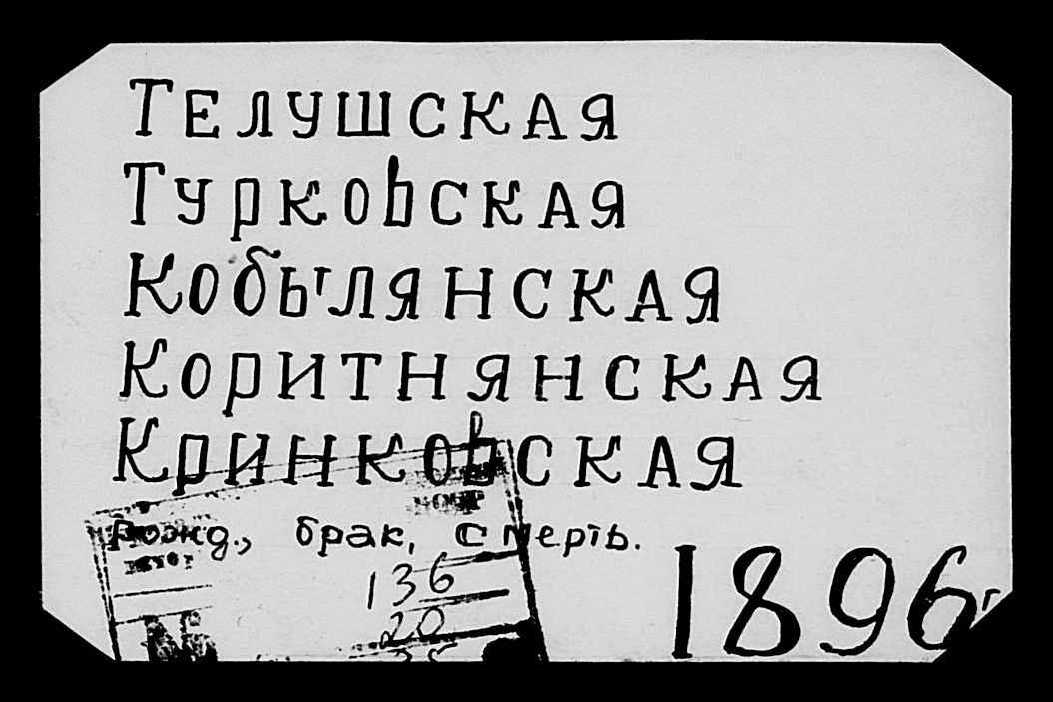 Телушская
Турковская
Кобылянская
Коритнянская
Кринковская
Рожд., брак, смерть.
136
20
1896 г